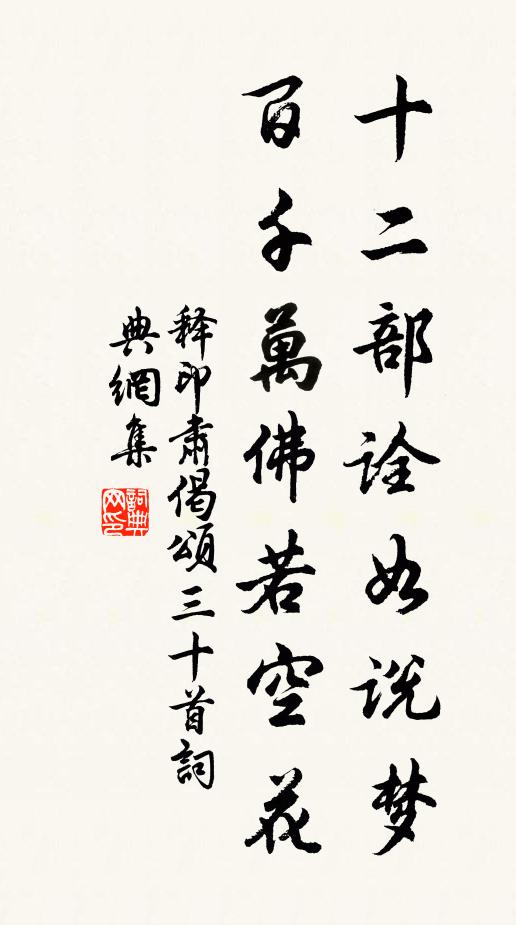 十二部诠如说梦
百千萬佛若空花
释印肃偈頌三十首詞
典網集
詞典网印